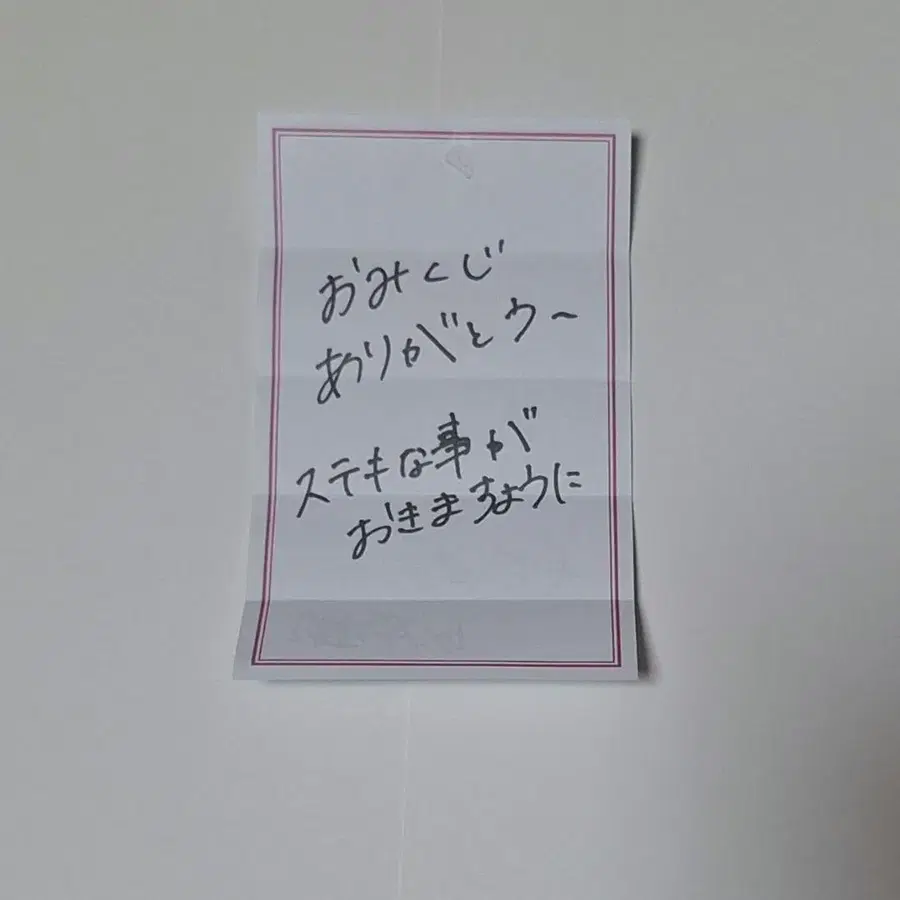 おみくじ
ありがとウ〜
ステキな事が
おきますように